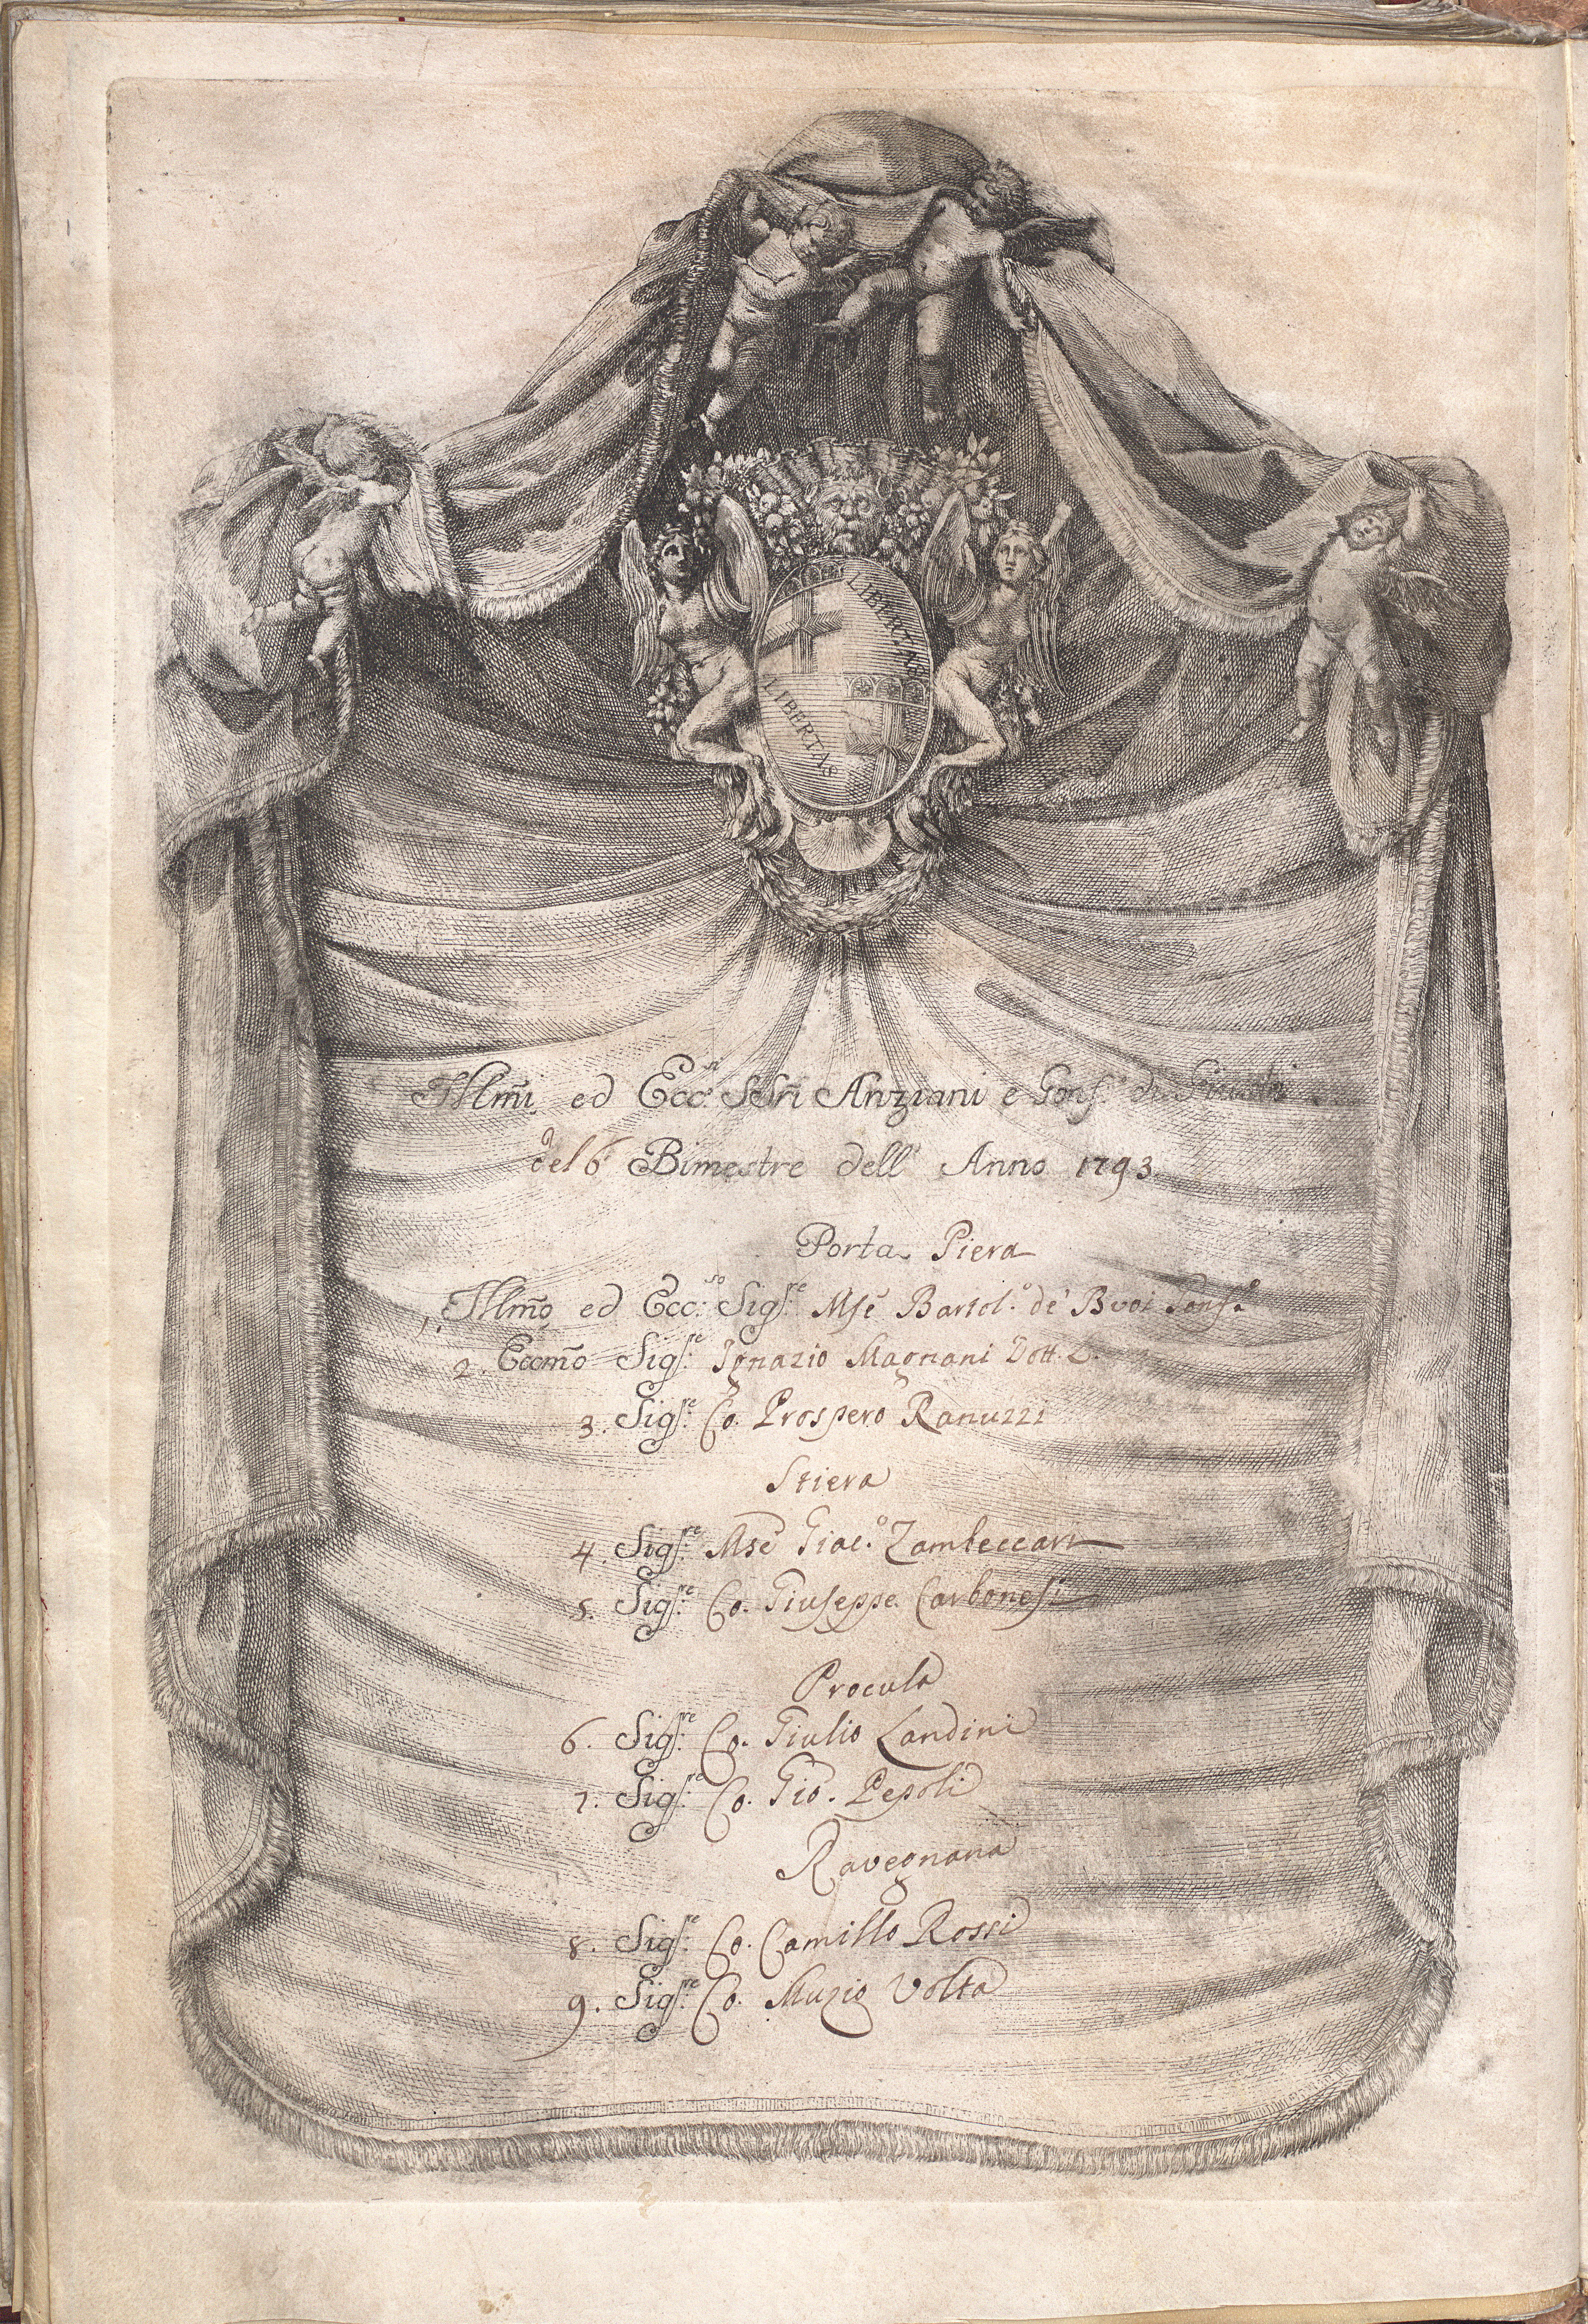 LIBERTAS
LIBERTAS
Illm̃i ed Ecc.ⁿⁱ SSri Anziani e Gonf.ᵉ di
del 6.º Bimestre dell' Anno 1793.
Porta Piera
1. Illm̃o ed Ecc.ˢᵒ Sigʳ.ʳᵉ Mse Bartol.º de' Bvoi Gonf.ᵉ
2. Eccm̃o Sigʳ.ᵉ Ignazio Magnani Dott. L.
3. Sigʳ.ʳᵉ Co. Prospero Ranuzzi
Stiera
4. Sigʳ.ʳᵉ Mse Giac.º Zambeccari
5. Sigʳ.ʳᵉ Co. Giuseppe Carbonesi
Procula
6. Sigʳ.ʳᵉ Co. Giulio Landini
7. Sigʳ.ʳᵉ Co. Gio. Pepoli
Ravegnana
8. Sigʳ.ʳᵉ Co. Camillo Rossi
9. Sigʳ.ʳᵉ Co. Muzio Volta